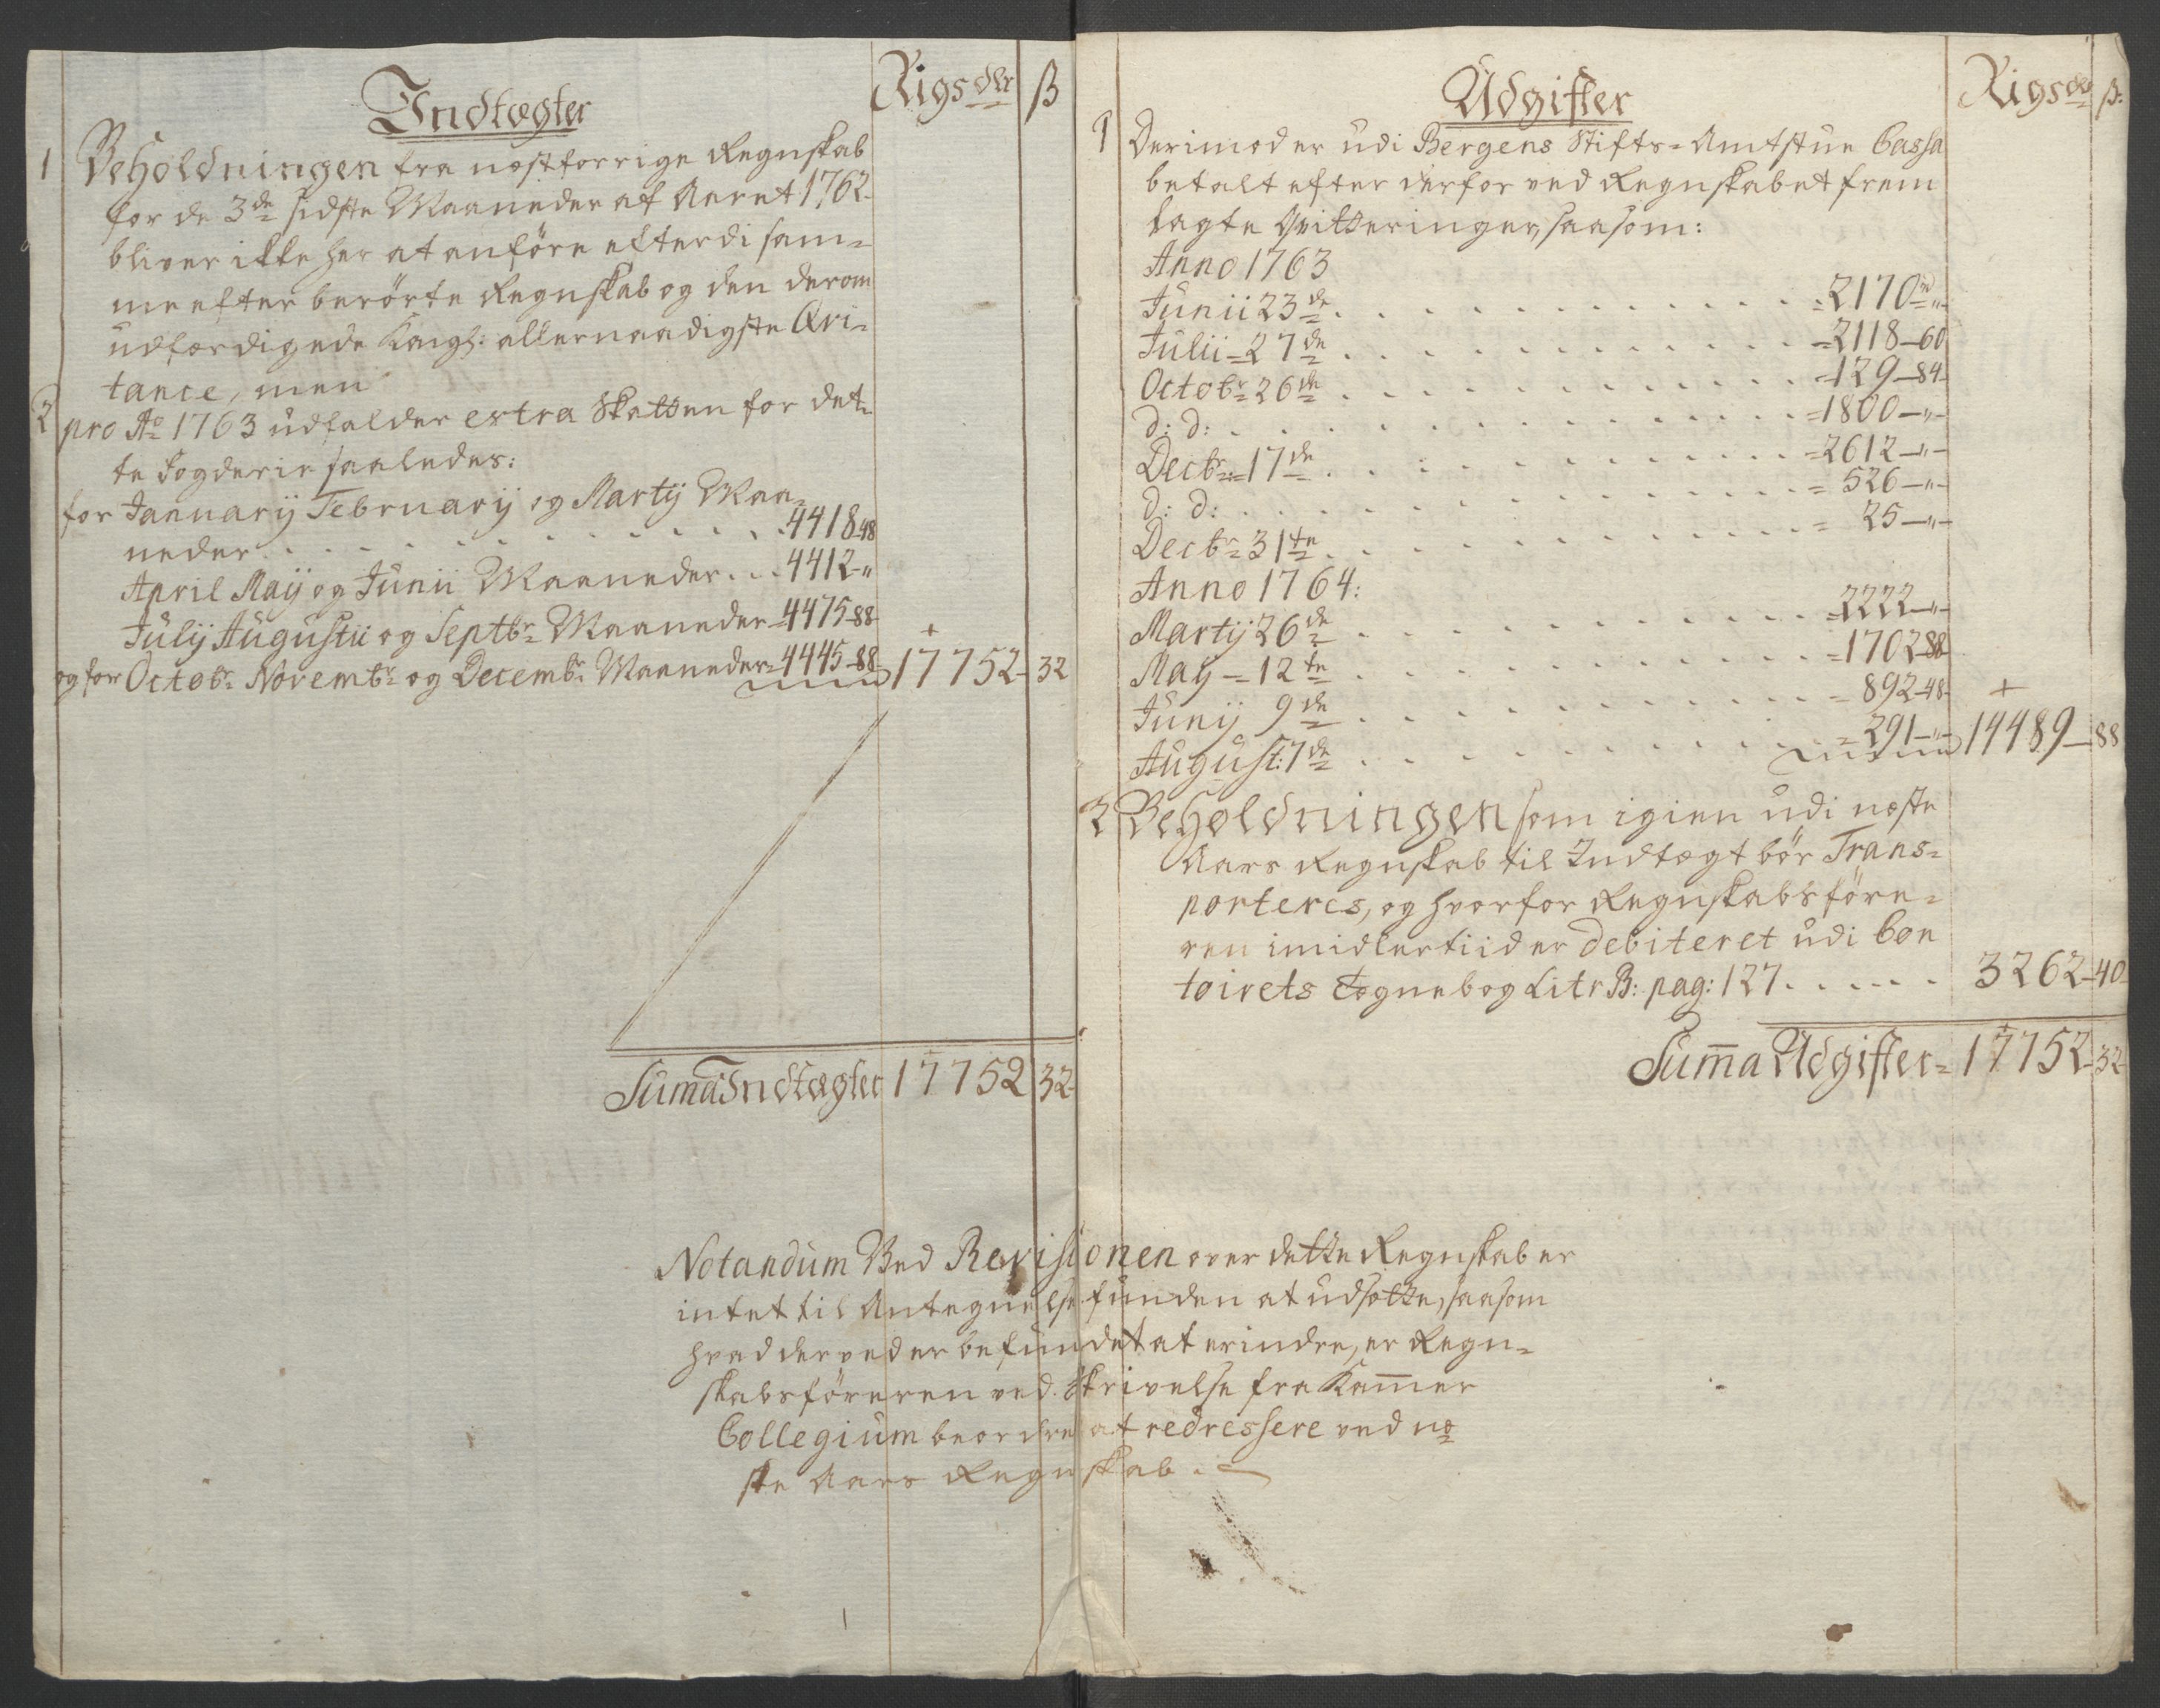 Indtægter
Rigsdlr
ß
1 Beholdningen fra næstforrige Regnskab
for de 3de sidste Maaneder af Aaret 1762.
bliver ikke her at anføre efterdi sam=
me efter berørte Regnskab og den derom
udfærdigede Kongl: allernaadigste Qvi=
tance, men
2 pro Ao 1763 udfalder extra Skatten for det=
te Fogderie saaledes:
for Januarij Februarij og Martij Maa=
neder . . . . . . . . . . . . 4418-48
April Maij og Junii Maaneder . . . 4412-"
Julij Augustii og Septbr Maaneder = 4475-88
og for Octobr Novembr og Decembr Maaneder = 4445-88 17752-32
Suma Indtægter 17752 32-
Udgifter
Rigsdlr
ß:
1 Derimod er udi Bergens Stifts=Amtstue Cassa
betalt efter derfor ved Regnskabet frem
lagte Qvitteringer, saasom:
Anno 1763
Junii 23de . . . . . . . . . . . = 2170 rd "-
Julii = 27de . . . . . . . . . . . = 2118-60
Octobr 26de . . . . . . . . . . . = 129-84
d: d: . . . . . . . . . . . = 1800-"-
Decbr = 17de . . . . . . . . . . . = 2612-"-
d: d: . . . . . . . . . . . = 526-"-
Decbr 31te . . . . . . . . . . . = 25-"-
Anno 1764:
Martij 26de . . . . . . . . . . . = 2222-"-
Maij = 12te . . . . . . . . . . . = 1702-88
Junij 9de . . . . . . . . . . . = 892-48-
August: 7de . . . . . . . . . . . = 291-"- 14489-88
2 Beholdningen som igien udi næste
Aars Regnskab til Indtægt bør Trans=
porteres, og hvorfor Regnskabsføre=
ren imidlertiid er debiteret udi Con
toirets Tegnebog Litr B: pag: 127 . . . . . . 3262-40
Suma Udgifter = 17752-32
Notandum Ved Revisionen over dette Regnskab er
intet til Antegnelse funden at udsætte, saasom
hvad derved er befundet at erindre, er Regn=
skabsføreren ved Skrivelse fra Kammer
Collegium beordret at redressere ved næ
ste Aars Regnskab.